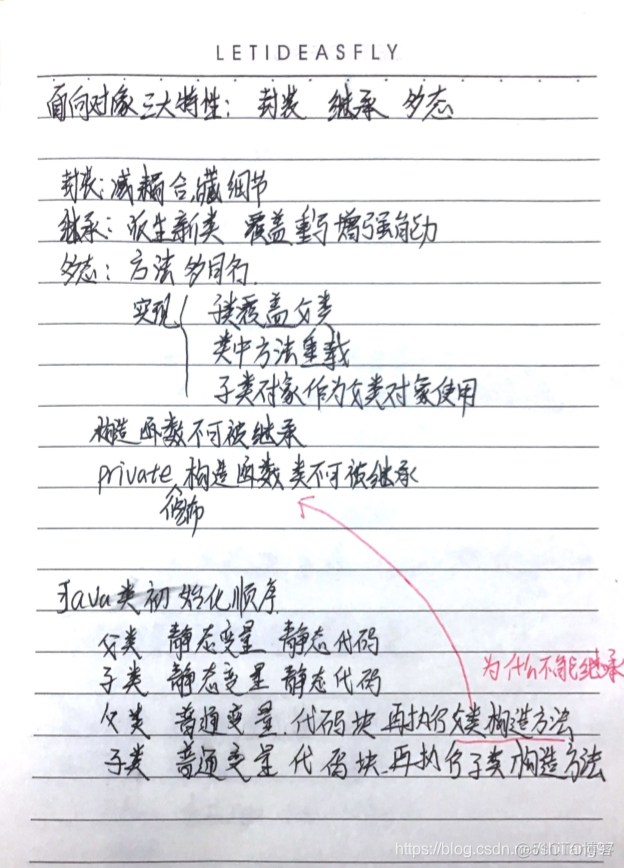 LETIDEASFLY
面向对象三大特性: 封装 继承 多态
封装: 减耦合,藏细节
继承: 派生新类 覆盖重写 增强能力
多态: 方法多同名.
实现 子类覆盖父类
类中方法重载
子类对象作为父类对象使用
构造函数不可被继承
private 构造函数 类不可被继承
修饰
Java类初始化顺序
父类 静态变量 静态代码
子类 静态变量 静态代码
为什么不能继承
父类 普通变量.代码块 再执行父类构造方法
子类 普通变量 代码块.再执行子类构造方法
https://blog.csdn.net/